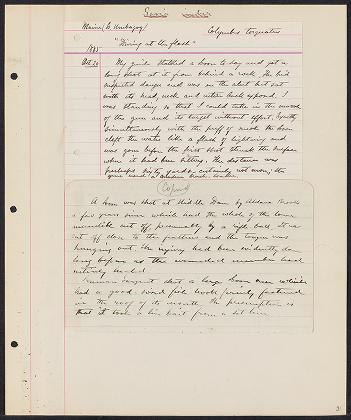 Maine (L. Umbagog) Colymbus torquatus
"Diving at the flash"
1885
Oct. 20 My guide stalked a loon to-day and got a
long shot at it from behind a rock. The bird
suspected danger and was on the alert but sat
with its head, neck and entire back exposed. I
was standing so that I could take in the muzzle
of the gun and its target without effort. Exactly
simultaneously with the puff of smoke the loon
cleft the water like a flash of lightning and
was gone before the first shot struck the surface
where it had been sitting. The distance was
perhaps sixty yards, certainly not more; the
gun used a
(Copied)
A loon was shot at Middle Dam by
a few years since which had the whole of the lower
mandible cut off presumably by a rifle ball. It was
cut off close to the feathers and the tongue was
hanging out. The injury had been evidently done
long before as the wounded member had
entirely healed
caught shot a large loon once which
had a good sized fish hook firmly fastened
in the roof of its mouth the presumption is
that it took a live bait from a set line